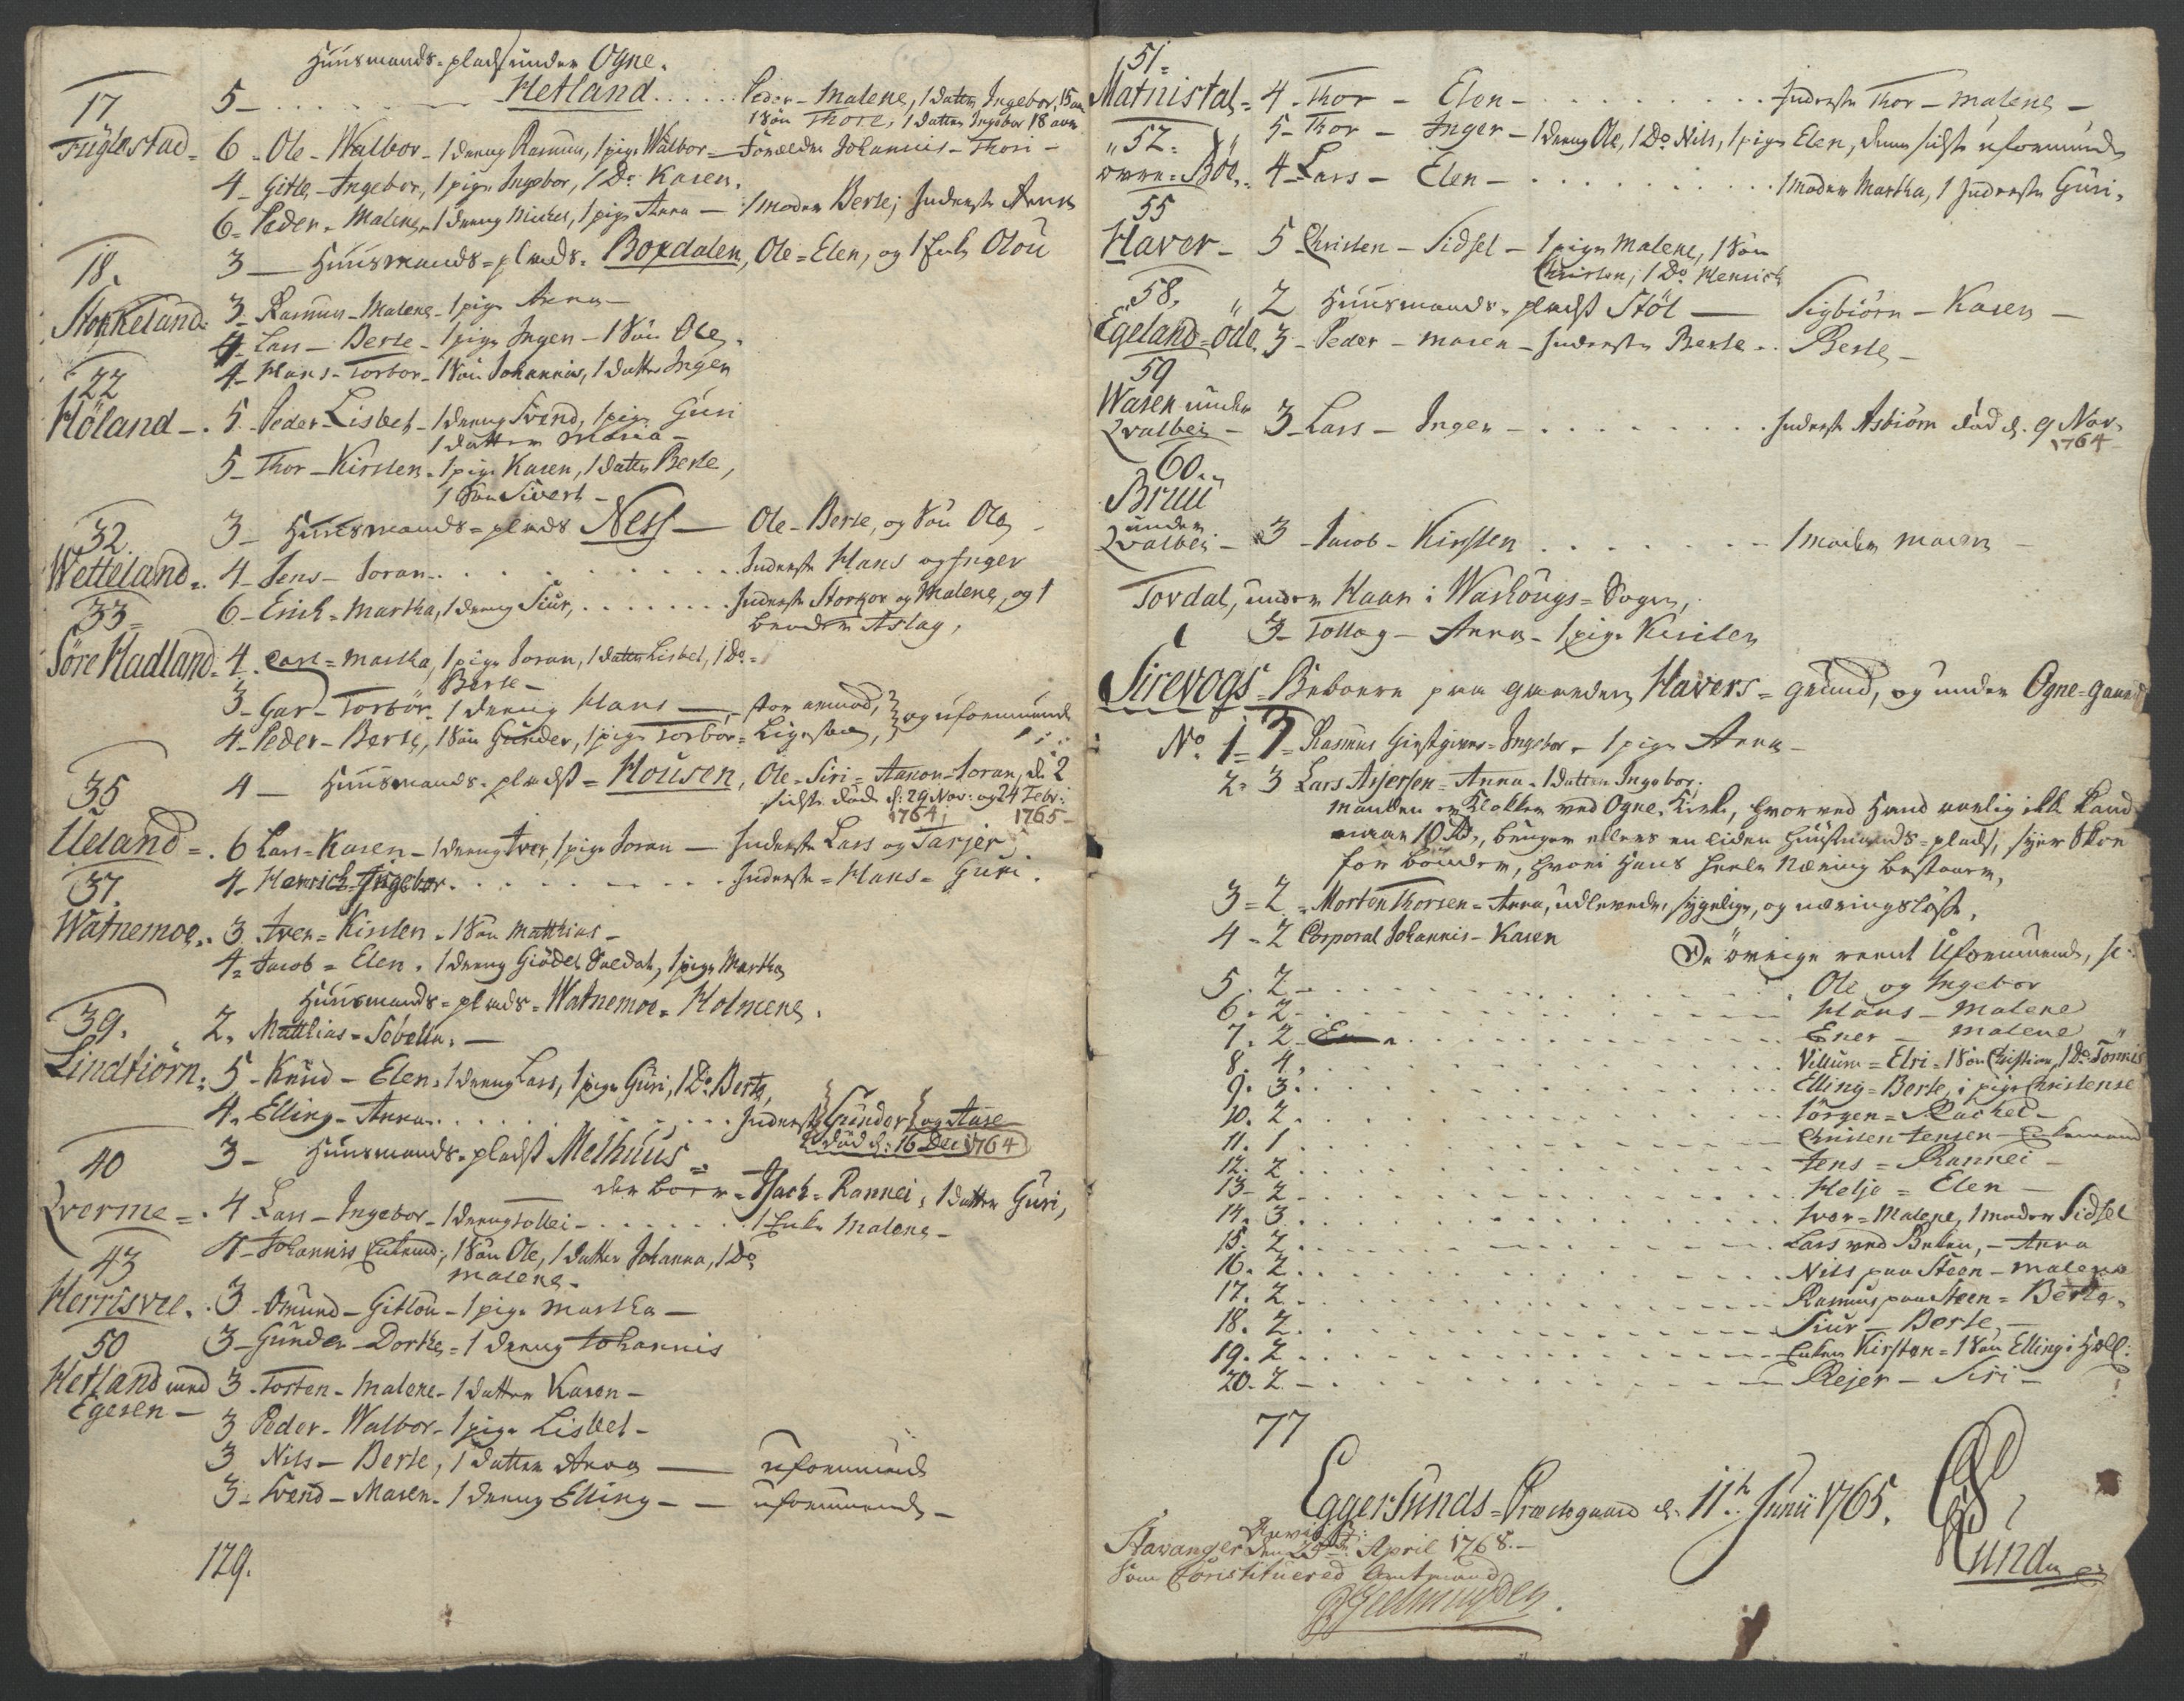 Huusmands-plads under Ogne.
17 5 - Hetland Peder - Malene, 1 datter Ingebor, 15 aar
1 Søn Thore, 1 datter Ingebor 18 aar
Fuglestad 6 - Ole - Walbor - 1 dreng Rasmus, 1 pige Walbor - Forældre Johannis - Thori -
4 - Gitle - Ingebor, 1 pige Ingebor, 1 Do Karen.
6 - Peder - Malene, 1 dreng Michel, 1 pige Anna - 1 moder Berte; Inderste Anna
18. 3 - Huusmands-plads Boxdalen, Ole - Elen, og 1 Enke Olou
Stokkeland 3 - Rasmus - Malene - 1 pige Anna -
4 - Lars - Berte - 1 pige Inger - 1 Søn Ole,
22 4 - Hans - Torbor - 1 Søn Johannis, 1 datter Inger
Høland - 5 - Peder - Lisbet - 1 dreng Svend, 1 pige Guri
1 datter Maria -
5 - Thor - Kirsten - 1 pige Karen, 1 datter Berte,
1 Søn Sivert -
32. 3 - Huusmands-plads Ness - Ole - Berte, og Søn Ole -
Wetteland 4 - Jens - Joran Inderste Hans og Inger
33 6 - Erich - Martha, 1 dreng Siur, Inderste Storkor og Malene, og 1
broder Aslag,
Søre Hadland 4 - Carl - Martha, 1 pige Joran, 1 datter Lisbet, 1 Do
Berte -
3 - Gar - Torbor - 1 dreng Hans - stor armod,
4 - Peder - Berte, 1 Søn Gunder, 1 pige Torbor - Ligesaa, og uformuende
35 4 - Huusmands-plads Housen, Ole - Siri - Aanon - Joran, de 2
sidste død d: 29 Nov: og 24 Febr:
1764, 1765 -
Ueland 6 Lars - Karen - 1 dreng Iver, 1 pige Joran - Inderste Lars og Tarjer,
37. 4 - Henrich - Ingebor Inderste - Hans - Guri.
Watnemoe 3 Iver - Kirsten - 1 Søn Matthias -
4 - Jacob - Elen, 1 dreng Giødel Soldat, 1 pige Martha
Huusmands-plads - Watnemoe - Holmene.
39. 2. Matthias - Sobella. -
Lindtiørn 5 - Knud - Elen, 1 dreng Lars, 1 pige Guri, 1 Do Berte,
4 - Elling - Anna Inderste Gunder og Aase
død d: 16 Dec 1764
40 3 - Huusmands-plads Melhuus
der boer - Isach - Rannei, 1 datter Guri,
Qverme 4 Lars - Ingebor - 1 dreng Tollei - 1 Enke Malene -
43 4 - Johannis Enkemd: 1 Søn Ole, 1 datter Johanna, 1 Do
Malene -
Herrisvee 3 - Omund - Gitlou - 1 pige Martha -
50 3 - Gunder - Dorthe - 1 dreng Johannis
Hetland ved 3 - Tosten - Malene - 1 datter Karen -
Egesen - 3 Peder - Walbor - 1 pige Lisbet -
3 Nils - Berte, 1 datter Anna - uformuende
3 - Svend - Maren - 1 dreng Elling - uformuende -
129.
51
Matnistal 4 - Thor - Elen - Inderste Thor - Malene -
52. 5 - Thor - Inger - 1 dreng Ole, 1 Do Nils, 1 pige Elen, denne sidste uformuende
øvre - Bøe 4 - Lars - Elen - 1 moder Martha, 1 Inderste Guri,
55
Haver - 5 Christen - Sidsel - 1 pige Malene, 1 Søn
Christen, 1 Do Henrich
58, 2 Huusmands-plads Støl - Sigbiørn - Karen -
Egeland - Øde 3 - Peder - Maren - Inderste Berte - Berte -
59
Wasen under
Qvalbei - 3 - Lars - Inger - Inderste Asbiørn død d. 9 Nov.
1764
60.
Bruu
under
Qvalbei - 3 - Jacob - Kirsten 1 moder Maren -
Tordal, under Haar i Warhougs - Sogn,
3 - Tollag - Anna - 1 pige Kirsten
Sirevogs - Beboere paa gaarden Havers - grund, og under Ogne - gaard
No 1 - 3 - Rasmus Giestgiver - Ingebor - 1 pige Anna -
2 - 3 Lars Asjersen - Anna - 1 datter Ingebor;
manden er Klokker ved Ogne Kirke, hvorved hand aarlig ikke kand
naae 10 Rd, bruger ellers en liden Huusmands-plads, syer Skoe
for bønder, hvori hans heele Næring bestaaer,
3 - 2 - Morten Thorsen - Anna, udlevede, sygelige, og næringsløse,
4 - 2 Corporal Johannis - Karen
De øvrige reent Uformuende, sc:
5. 2 Ole og Ingebor
6. 2 Hans - Malene
7. 2 Ener - Malene
8. 4 Villum - Elri - 1 Søn Christian, 1 Do Tønnis
9. 3 Elling - Berte, 1 pige Christense
10. 2 Jørgen - Rachel -
11. 1 Christen Jensen - Enkemand
12. 2 Jens - Rannei -
13 - 2 Helje - Elen -
14. 3 Iver - Malene, 1 moder Sidsel
15. 2 Lars ved Broen, - Anna
16. 2 Nils paa Steen - Malene
17. 2 Rasmus paa Steen - Berte,
18. 2 Siur - Berte,
19. 2 Enken Kirsten - 1 Søn Elling i Holl:
20. 2 Rejer - Siri -
77
Eggersunds - Præstegaard d. 11te Junii 1765.
Revid:
Stavanger den 25 April 1768. -
Som Constitueret Amtmand